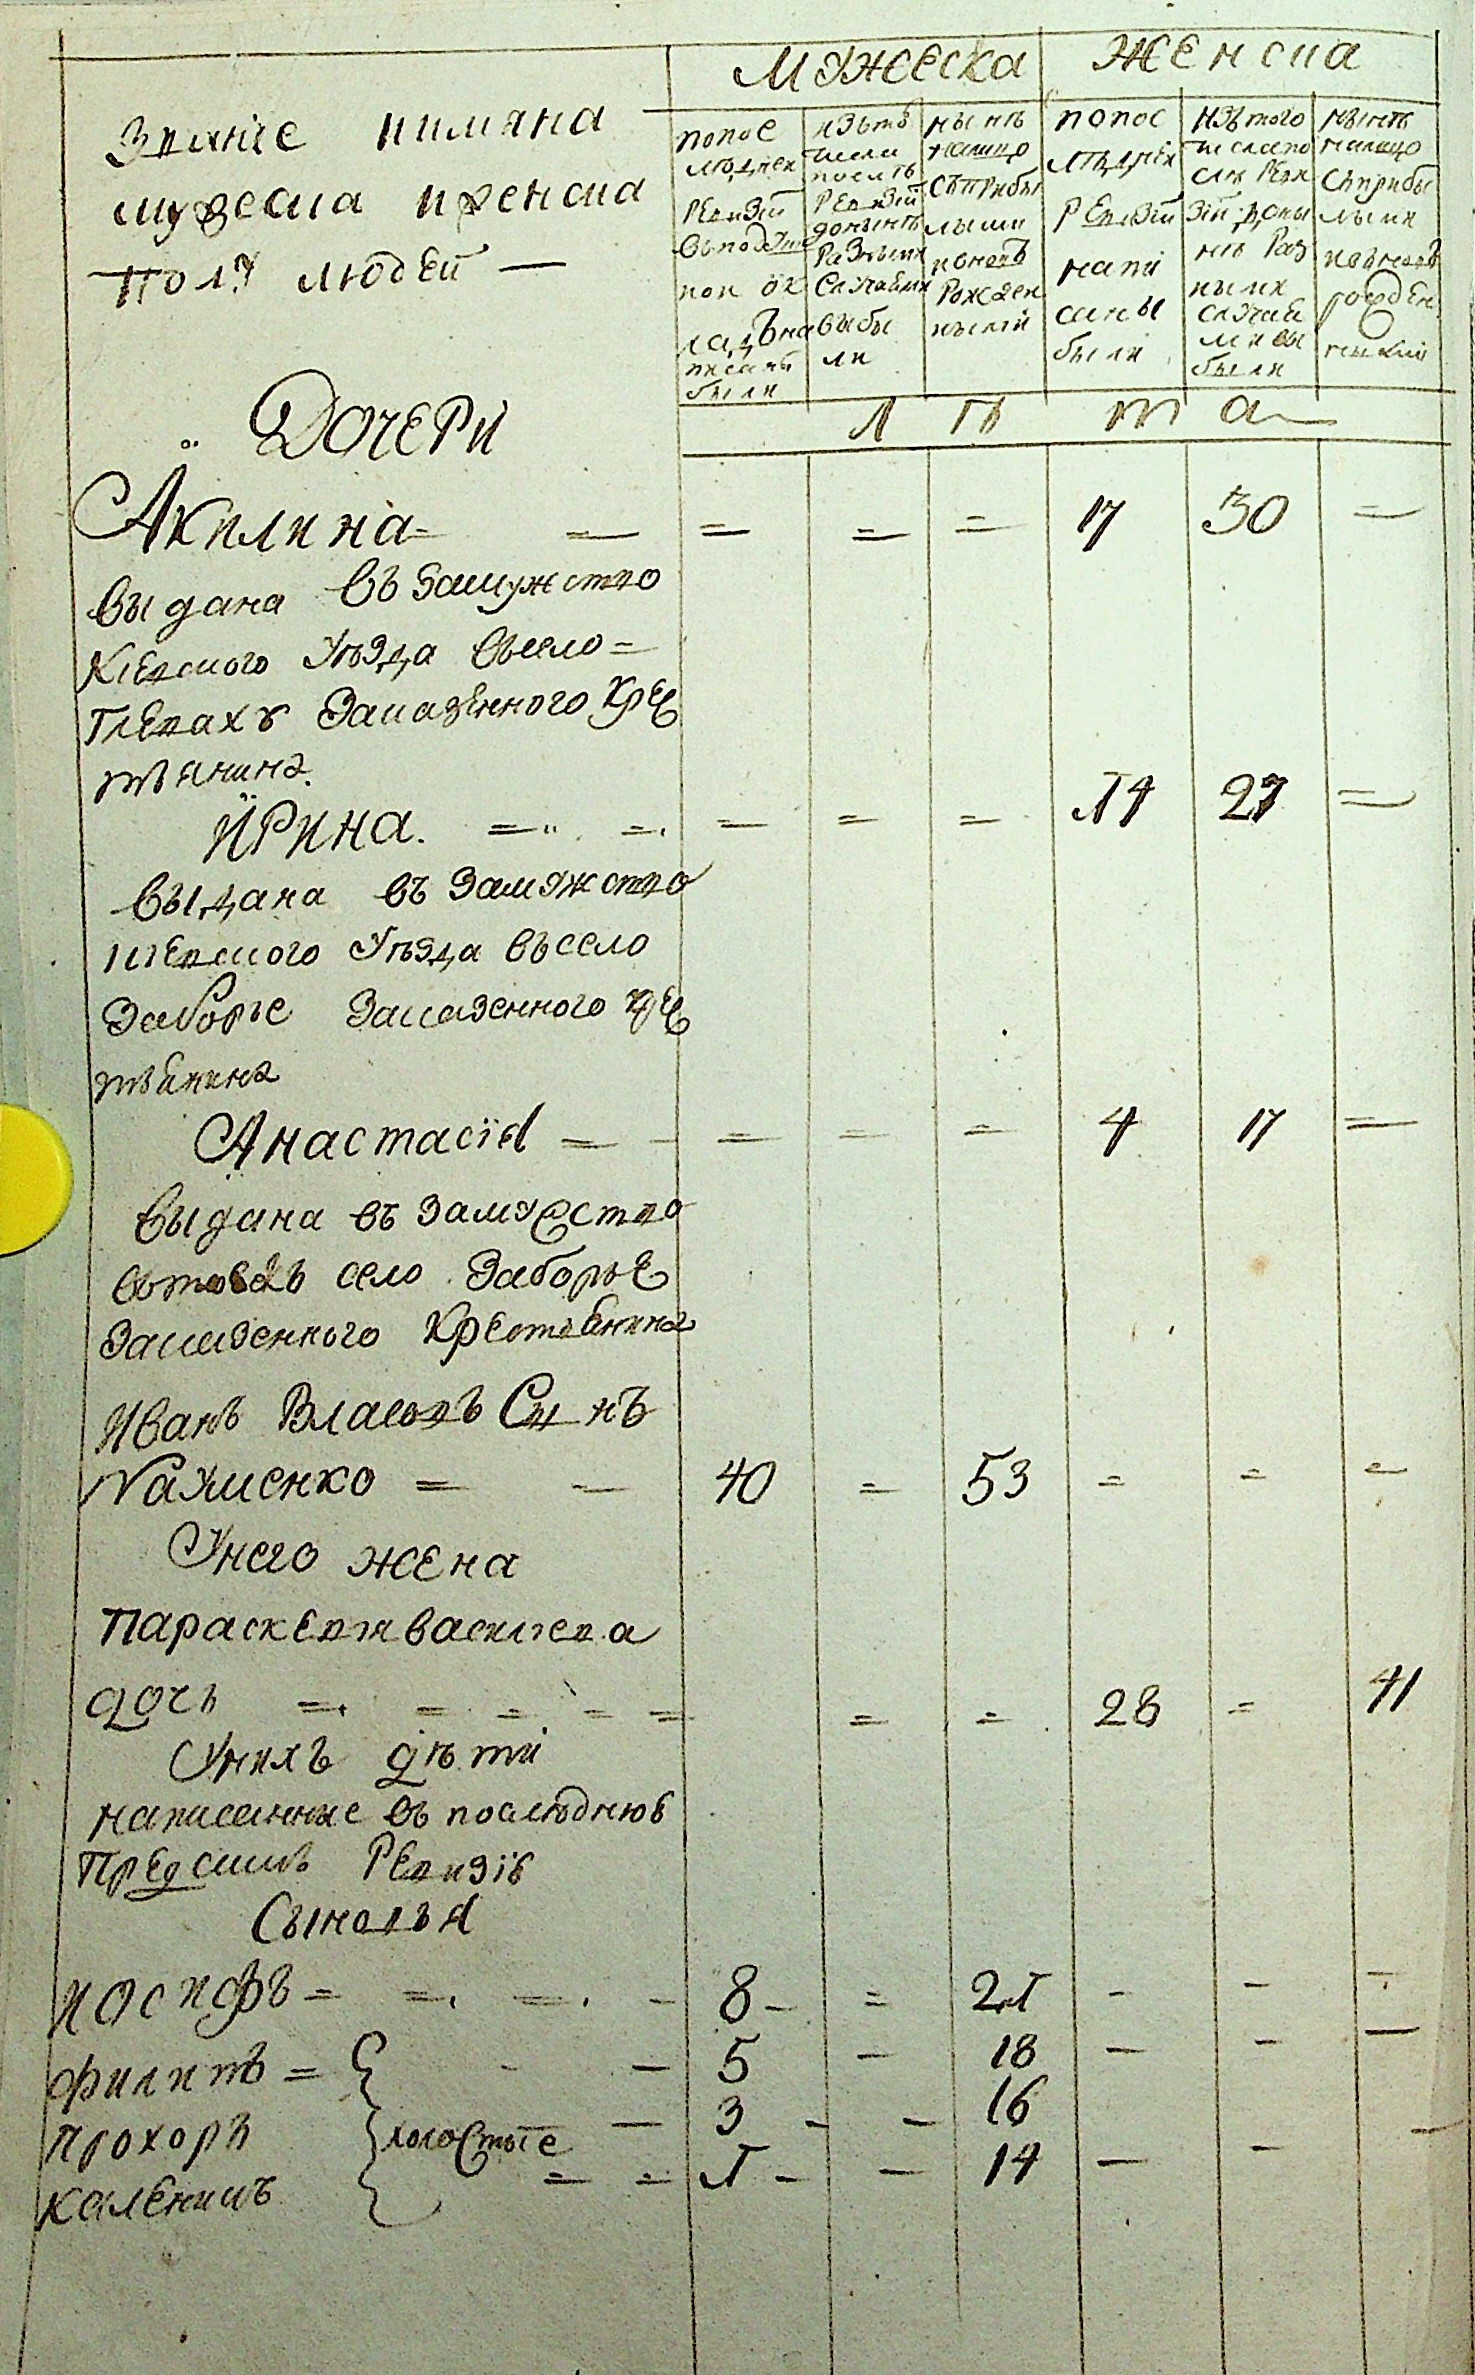 Мужеска Женска
Званіе иимяна
мужеска иженска
полу людей —
попос
люднеи
Ревизіи
вподушно
пои ок
ладъ на
писаны
были
изъто
числа
послѣ
Ревизіи
донынѣ
Разными
Случаями
выбы
ли
нынѣ
налицо
съприбы
лыми
ивновъ
Рожден
ными
попос
лѣднеи
Ревизіи
напи
саны
были
изътого
числапо
слѣ Реви
зіи доны
нѣ Раз
ными
случая
ми вы
были
нынѣ
налицо
съприбы
лыми
ивновъ
рожден
ными
Л ѣ т а
Дочери
Акилина = = = = = 17 30 =
выдана въ замужство
Кіевского Уѣзда всело =
Глеваху Заказенного Кре
стьянина.
Ирина. = = = = = 14 27 =
выдана въ замужство
кіевского Уѣзда въсело
Заборье Заказенного кре
стьянина
Анастасія = - = = = 4 17 =
выдана въ замужство
втожъ село Заборье
Заказенного Крестьянина
Иванъ Власовъ Сынъ
Науменко = - 40 = 53 = = =
Унего жена
Параскевия василева
дочь = = = - = = = 28 = 41
Унихъ дѣти
написанные въ послѣднюю
Предсимъ Ревизію
Сыновья
иосифъ = = = - 8 - = 21 - - -
филипъ = - - 5 - 18 - - -
прохоръ холостые - 3 - - 16 -
каленикъ = = 1 - - 14 - -